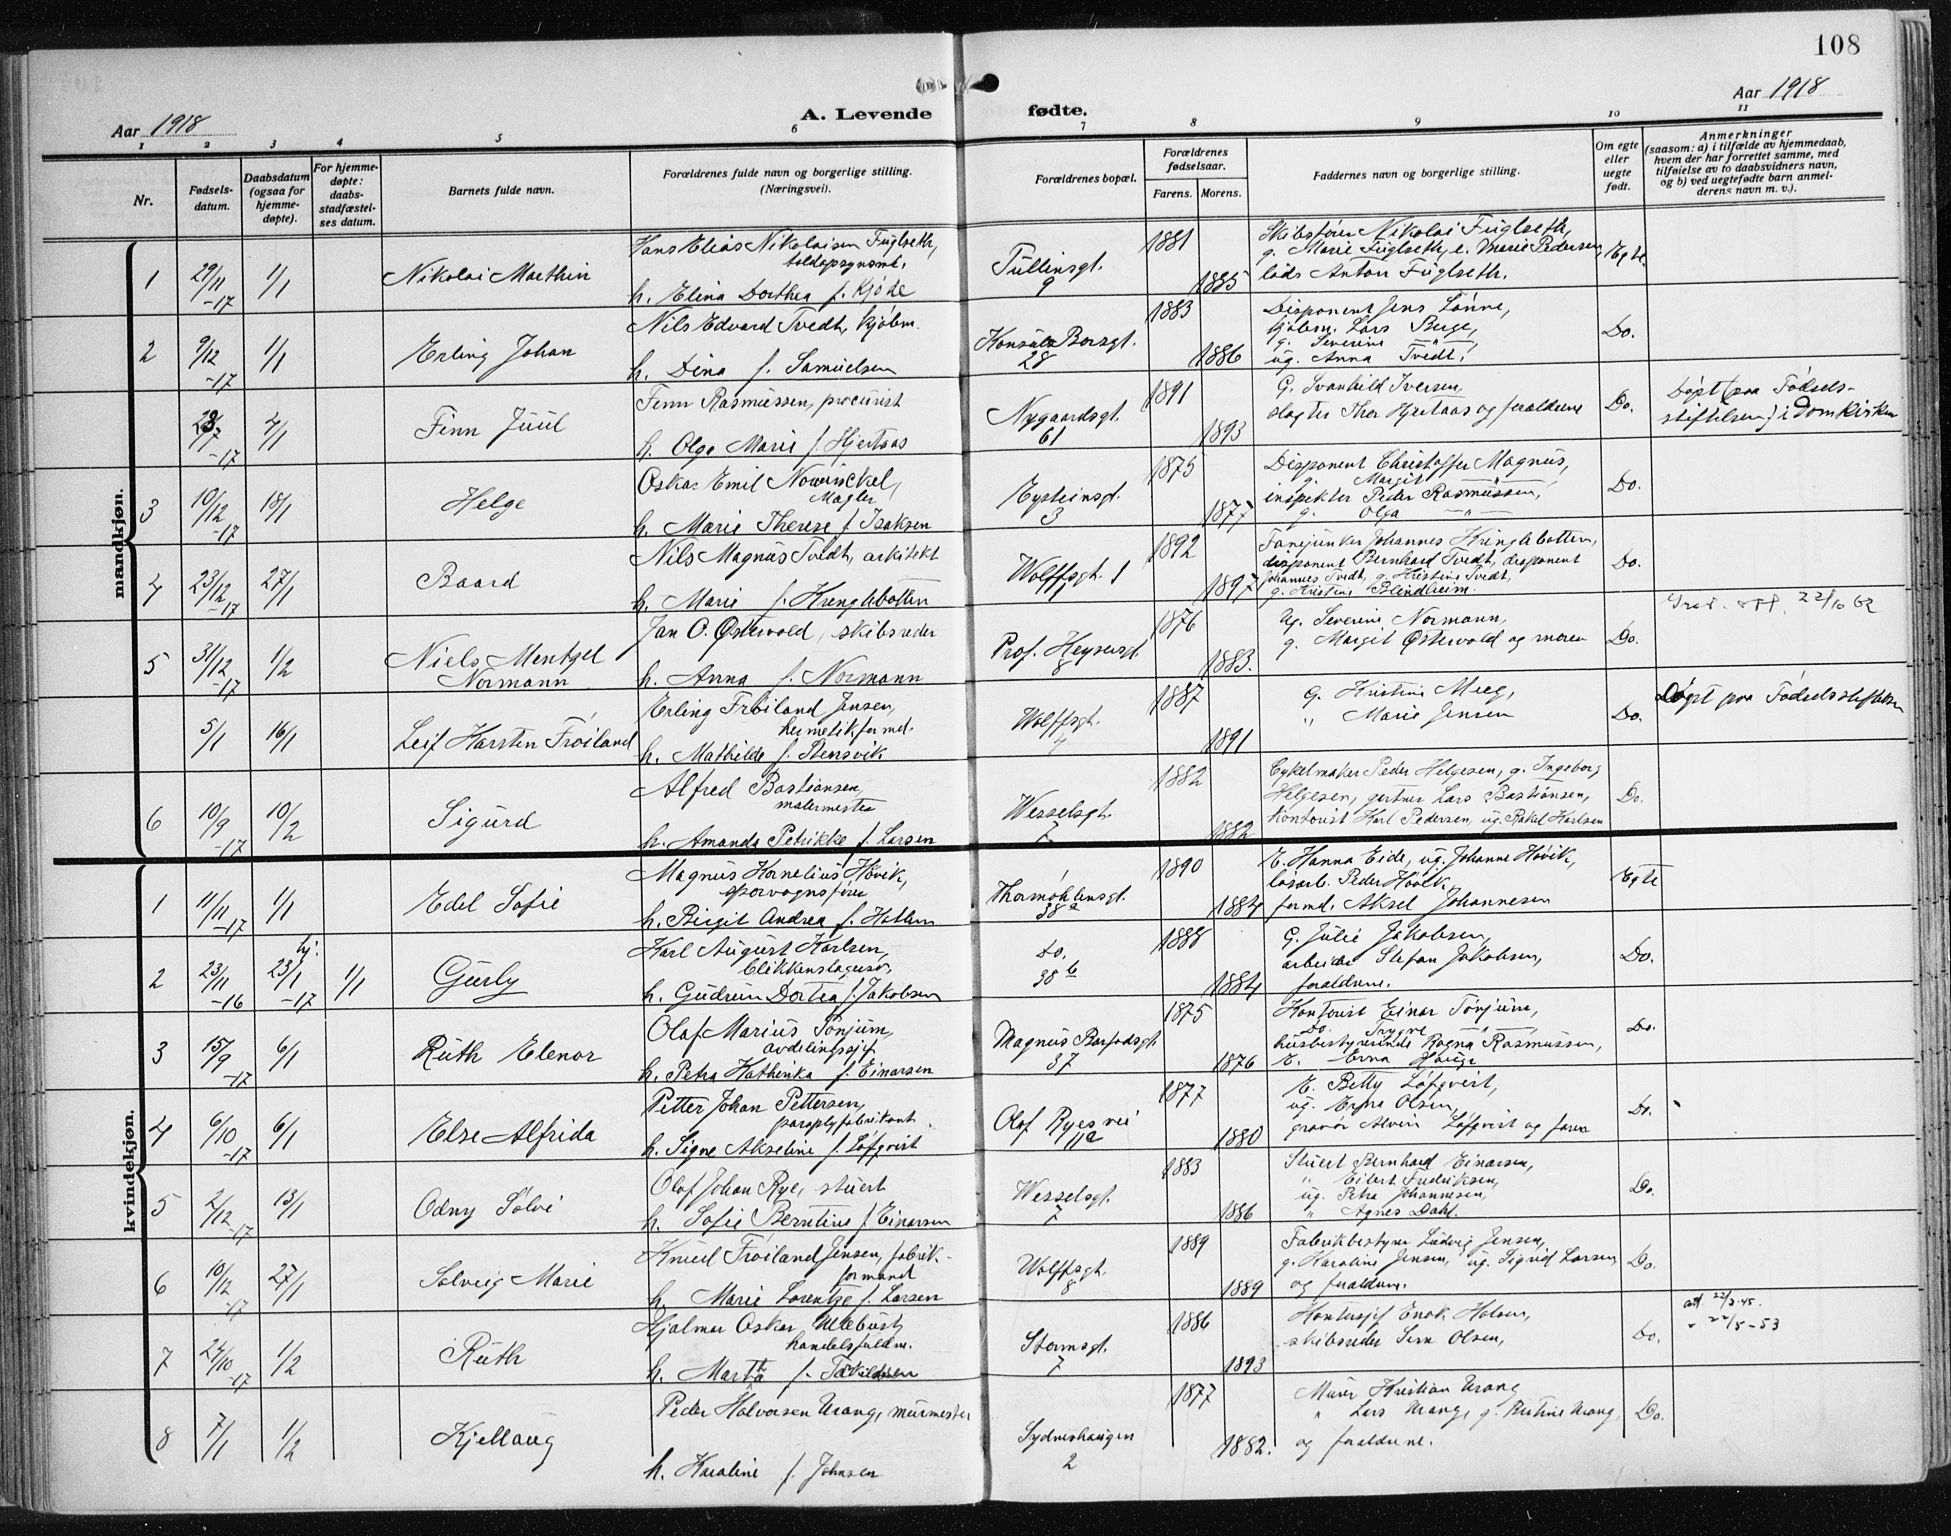 108
Aar 1918
A. Levende fødte.
Aar 1918
1 2 3 4 5 6 7 8 9 10 11
Nr.
Fødsels-
datum.
Daabsdatum
(ogsaa for
hjemme-
døpte).
For hjemme-
døpte:
daabs-
stadfæstel-
ses datum.
Barnets fulde navn.
Forældrenes fulde navn og borgerlige stilling.
(Næringsvei).
Forældrenes bopæl.
Forældrenes
fødselsaar.
Farens. Morens.
Faddernes navn og borgerlige stilling.
Om egte
eller
uegte
født.
Anmerkninger
(saasom: a) i tilfælde av hjemmedaab,
hvem der har forrettet samme, med
tilføielse av to daabsvidners navn,
og b) ved uegtefødte barn anmel-
derens navn m. v.).
mandkjøn.
1 29/11 -17 1/1 Nikolai Marthin
Hans Elias Nikolaisen Fuglseth,
toldopsynsmd.
h. Elina Dorthea f. Kjøde
Tullinsgt.
9
1881 1885
Skibsfører Nikolai Fuglseth,
g. Marie Fuglseth, e. Marie Pedersen,
lods Anton Fuglseth.
Egte
2 9/12 -17 1/1 Erling Johan
Nils Edvard Tvedt, kjøbm.
h. Dina f. Samuelsen
Konsul Børsgt.
28
1883 1886
Disponent Jens Lønne,
kjøbm. Lars Berge,
g. Severine — " —,
ug. Anna Tvedt.
Do.
-17 4/1 Finn Juul
Finn Rasmussen, procurist
h. Olga Marie f. Hjertaas
Nygaardsgt.
61
1891 1893
G. Svanhild Iversen
slagter Thor Hjertaas og forældrene
Do.
Døpt (paa Fødsels-
stiftelsen) i Domkirken
3 10/12 -17 18/1 Helge
Oskar Emil Nowinckel,
Mægler
h. Marie Therese f. Isaksen
Eysteinsgt.
3
1875 1877
Disponent Christoffer Magnus,
g. Margit "
inspektør Peder Rasmussen,
g. Olga — " —
Do.
4 23/12 -17 27/1 Baard
Nils Magnus Tvedt, arkitekt
h. Marie f. Kringlebotten
Wolffsgt. 1
1892 1897
Fanejunker Johannes Kringlebotten,
disponent Bernhard Tvedt, disponent
Johannes Tvedt, g. Kristine Tvedt,
g. Kristine Blindheim.
Do.
5 31/12 -17 1/2 Niels Mentzel
Normann
Jan O. Østervold, skibsreder
h. Anna f. Normann
Prof. Heysersgt.
8
1876 1883.
Ug. Severine Normann,
g. Margit Østervold og moren
Do.
22/10 62
5/1 16/1 Leif Karsten Frøiland
Erling Frøiland Jensen,
hermetikformd.
h. Mathilde f. Stensvik
Wolffsgt.
4
1887 1891
g. Kristine Meeg,
" Marie Jensen
Do.
Døpt paa Fødselsstiftelsen
6 10/9 -17 10/2 Sigurd
Alfred Bastiansen,
malermester
h. Amanda Petrikke f. Larsen
Wesselsgt.
7
1882 1882
Cykelmaker Peder Helgesen, g. Ingeborg
Helgesen, gartner Lars Bastiansen,
kontorist Karl Pedersen, ug. Rakel Karlsen
Do.
kvindekjøn.
1 11/11 -17 1/1 Edel Sofie
Magnus Kornelius Høvik,
sporvognsfører
h. Birgit Andrea f. Hatlem
Thormøhlensgt.
38a
1890 1884
E. Hanna Eide, ug. Johanne Høvik,
løsarb. Peder Høvik,
formd. Aksel Johannesen
Egte
2 23/11 -16 hj. 23/1 -17 1/1 Gurly
Karl August Karlsen,
blikkenslagersv.
h. Gudrun Dortea f. Jakobsen
Do.
38 b
1888 1884
G. Julie Jakobsen,
arbeider Stefan Jakobsen,
forældrene.
Do.
3 15/9 -17 6/1 Ruth Elenor
Olaf Marius Tønjum,
avdelingssjef
h. Petra Kathinka f. Einarsen
Magnus Barfodsgt.
37
1875 1876
Kontorist Einar Tønjum,
Do. Trygve "
husbestyrerinde Ragna Rasmussen,
E. Erna Hauge
Do.
4 6/10 -17 6/1 Else Alfrida
Petter Johan Pettersen,
paraplyfabrikant
h. Signe Akseline f. Løfqvist
Olaf Ryes vei
11a
1877 1880
E. Betty Løfqvist,
ug. Erna Olsen,
gravør Alvin Løfqvist og faren
Do.
5 2/12 -17 13/1 Odny Sølvi
Olaf Johan Rye, stuert
h. Sofie Berntine f. Einarsen
Wesselsgt.
7
1883 1886
Stuert Bernhard Einarsen,
" Eilert Fredriksen,
ug. Petra Johannesen,
" Agnes Dahl.
Do.
6 10/12 -17 27/1 Solveig Marie
Knud Frøiland Jensen, fabrik-
formand
h. Marie Lorentze f. Larsen
Wolffsgt.
8
1889 1889
Fabrikbestyrer Ludvig Jensen,
g. Karoline Jensen, ug. Sigrid Larsen
og forældrene.
Do.
7 24/10 -17 1/2 Ruth
Hjalmar Oskar Ullebust,
handelsfuldm.
h. Martha f. Tarkildsen
Stormsgt.
7
1886 1893
Kontorsjef Enok Halsen,
skibsreder Sern Olsen,
Do.
att. 22/3-45.
" 22/8-53
8 7/1 1/2 Kjellaug
Peder Halvorsen Urang, murmester
h. Karoline f. Johnsen
Sydneshaugen
2
1877 1882.
Murer Kristian Urang
" Lars Urang, g. Kristine Urang,
og forældrene.
Do.